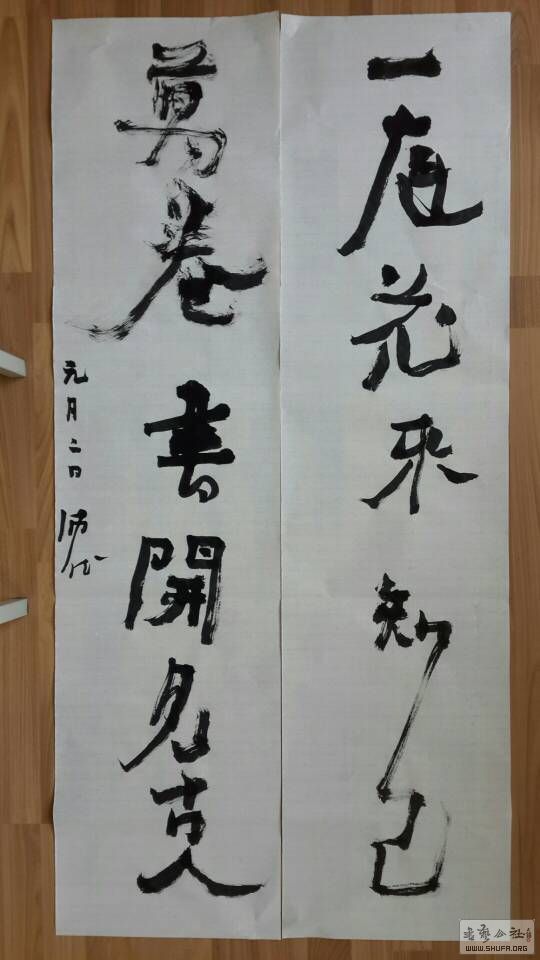 一庭花来知己
萬卷書開見古人
元月二日
書藝公社
WWW.SHUFA.ORG